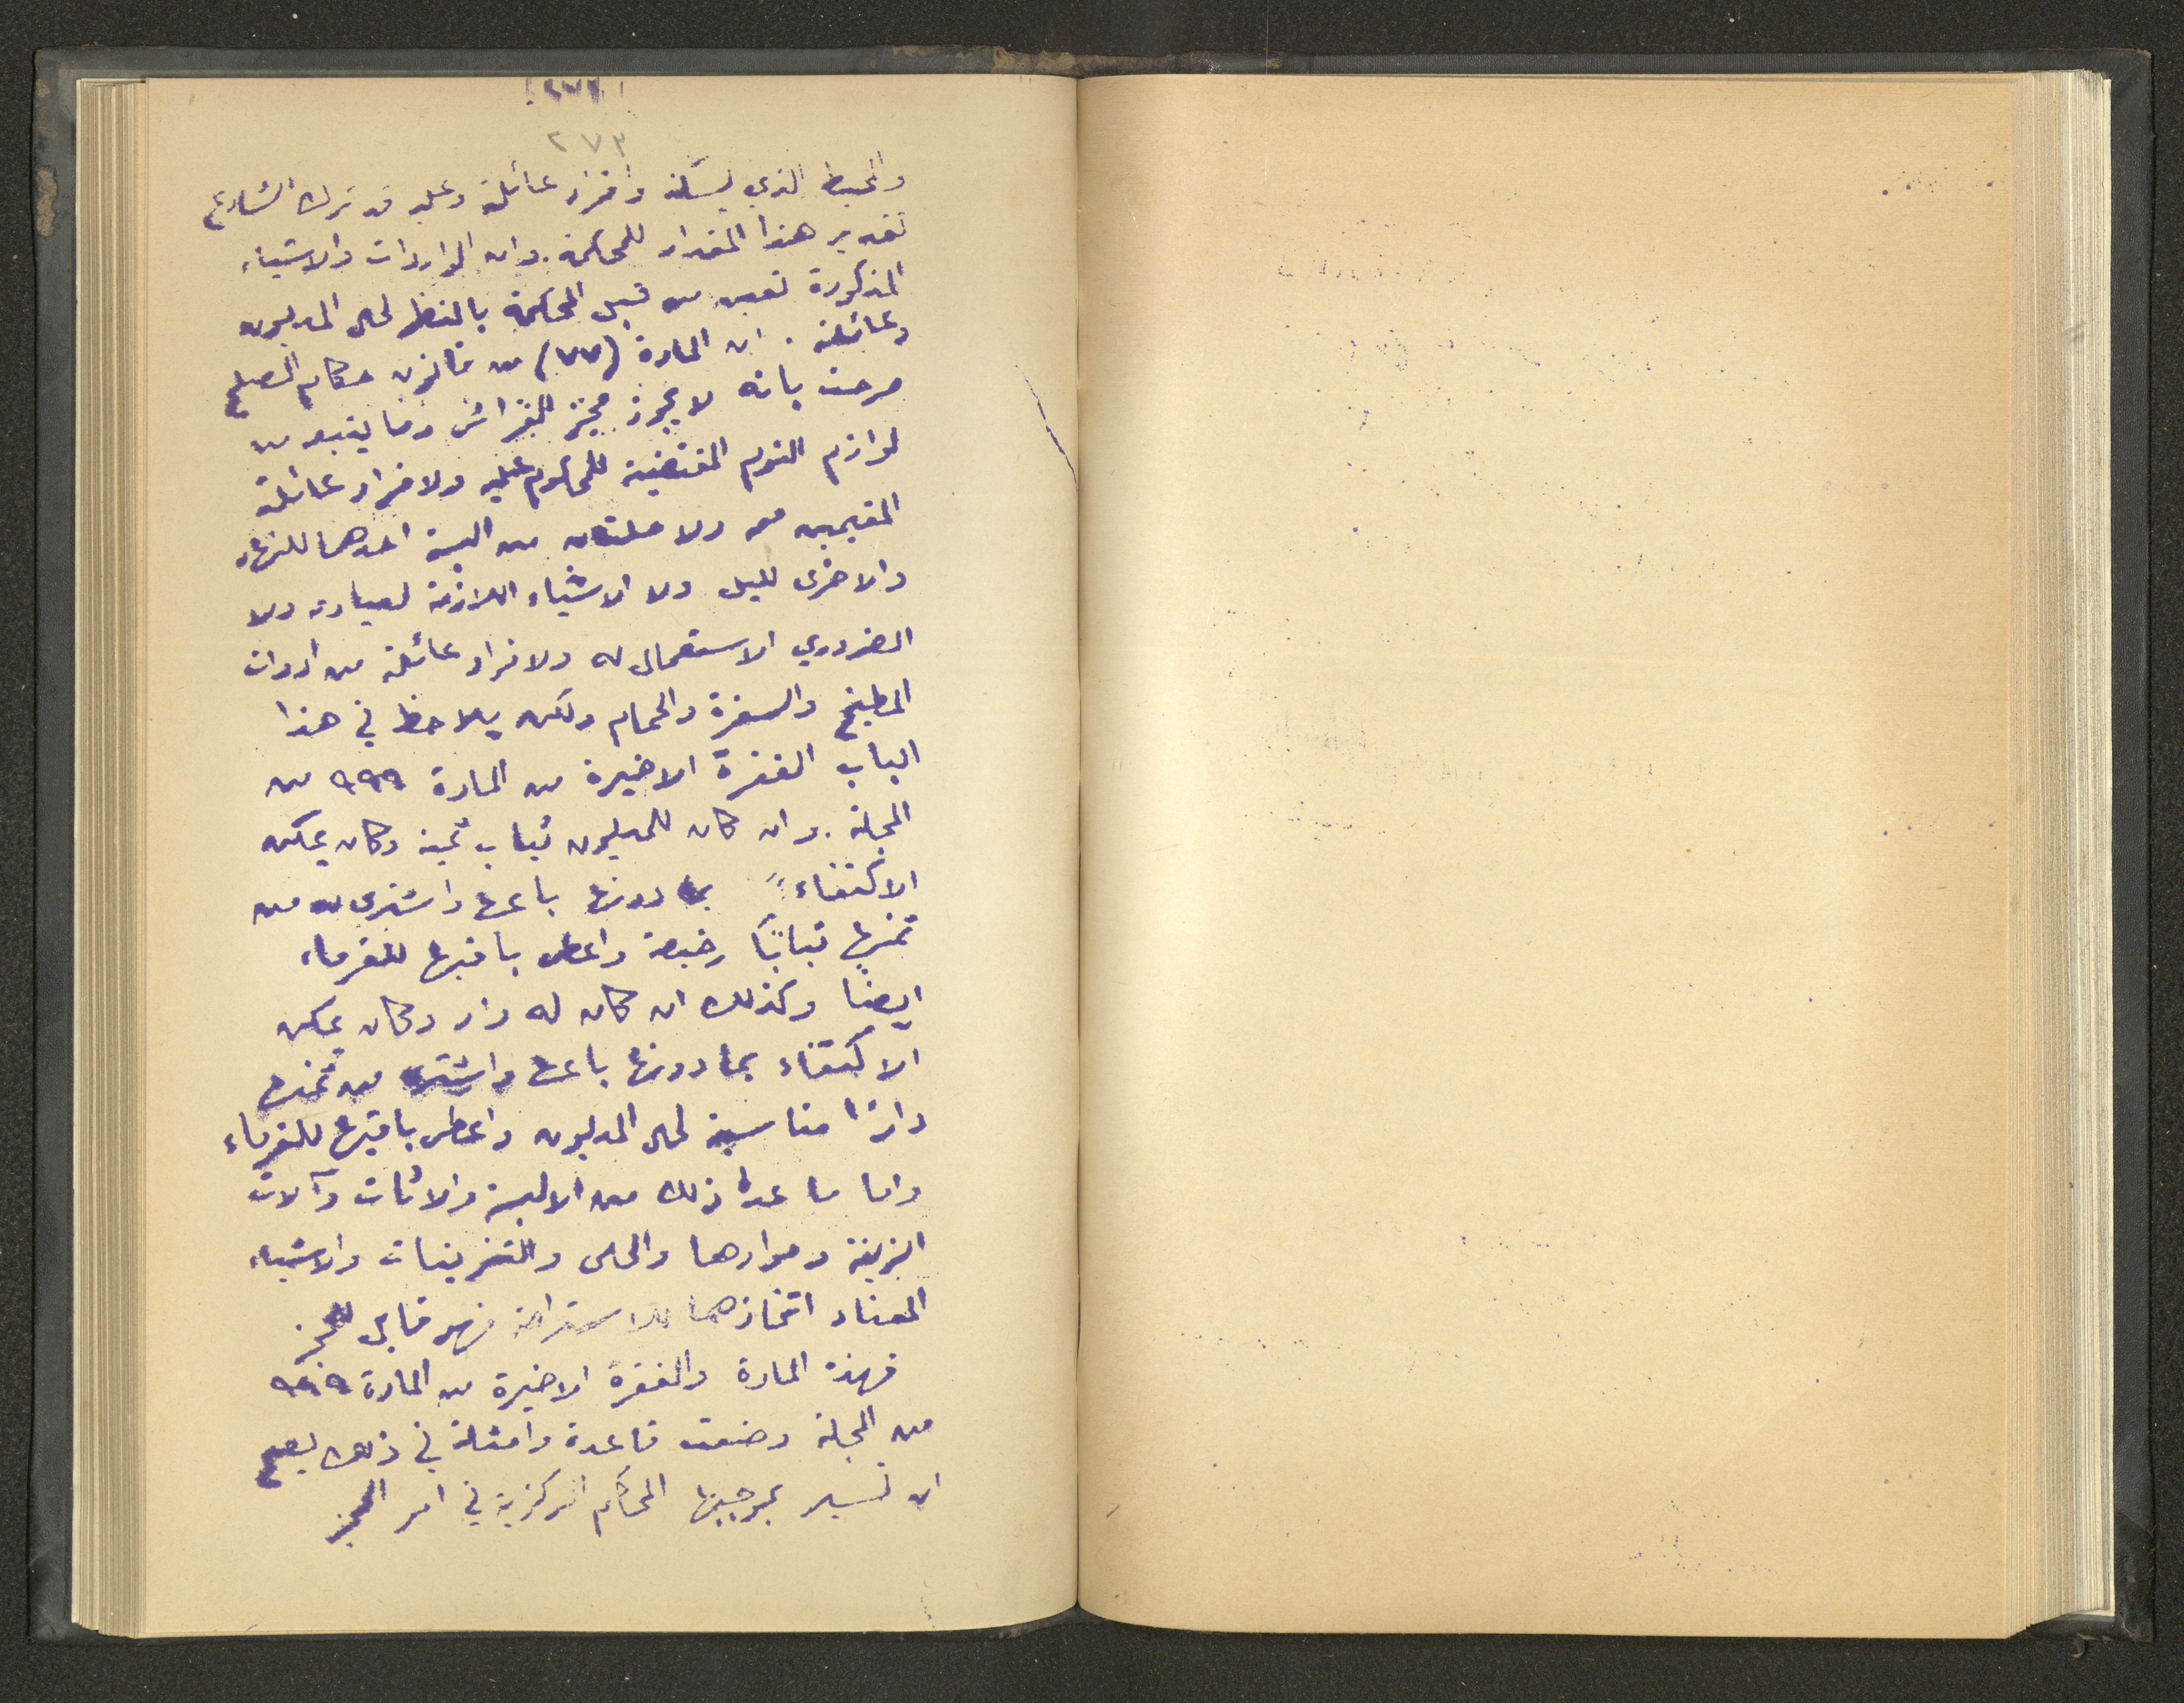 ٢٧٣
والمحيط الذي يسكنه وافراد عائلته وعليه قد ترك الشارع
تقدير هذا المقدار للمحكمة. وان الواردات والاشياء
المذكورة تعين من قبل المحكمة بالنظر لحال المديون
وعائلته. ان المادة (٧٧) من قانون حكام الصلح
صرحت بانه لا يجوز حجز الفراش وما يتبعه من
لوازم النوم المقتضية للمحكوم عليه ولافراد عائلته
المقيمين معه ولا حلتان من البسة احدهما للنهار
والاخرى لليل ولا الاشياء اللازمة لعبادته ولا
الضروري الاستعمال له ولافراد عائلته من ادوات
المطبخ والسفرة والحمام ولكن يلاحظ في هذا
الباب الفقرة الاخيرة من المادة ٩٩٩ من
المجلة. وان كان للمديون ثياب ثمينة وكان يمكن
الاكتفاء بما دونها باعها واشترى له من
ثمنها ثيابًا رخيصة واعطى باقيها للغرماء
ايضًا وكذلك ان كان له دار وكان يمكن
الاكتفاء بما دونها باعها واشترى من ثمنها
دارًا مناسبة لحال المديون واعطى باقيها للغرماء
واما ما عدا ذلك من الالبسة والاثاث وآلات
الزينة وموادها والحلى والتزيينات والاشياء
المعتاد اتخاذها للاستراحة فهو قابل للحجز
فهذه المادة والفقرة الاخيرة من المادة ٩٩٩
من المجلة وضعت قاعدة وامثلة في ذلك يصلح
ان تسير بموجبها المحاكم المركزية في امر الحجز